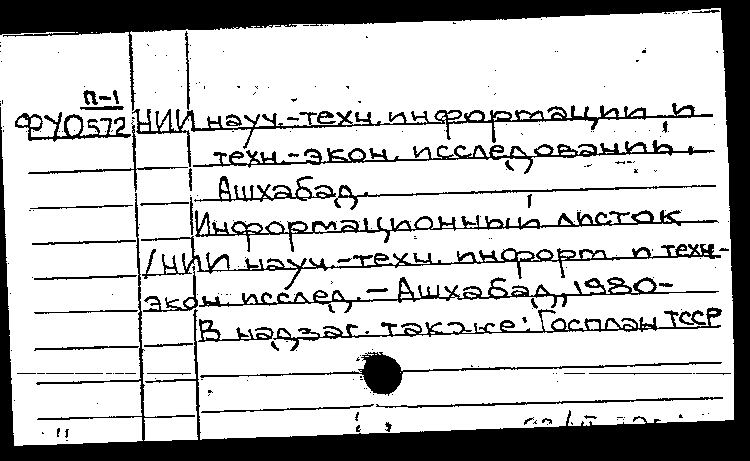 П-1
ФУ0572 НИИ науч.-техн. информации и
техн.-экон. исследований.
Ашхабад.
Информационный листок
/НИИ науч.-техн. информ. и техн.-
экон. исслед. – Ашхабад, 1980-
В надзаг. также: Госплан ТССР